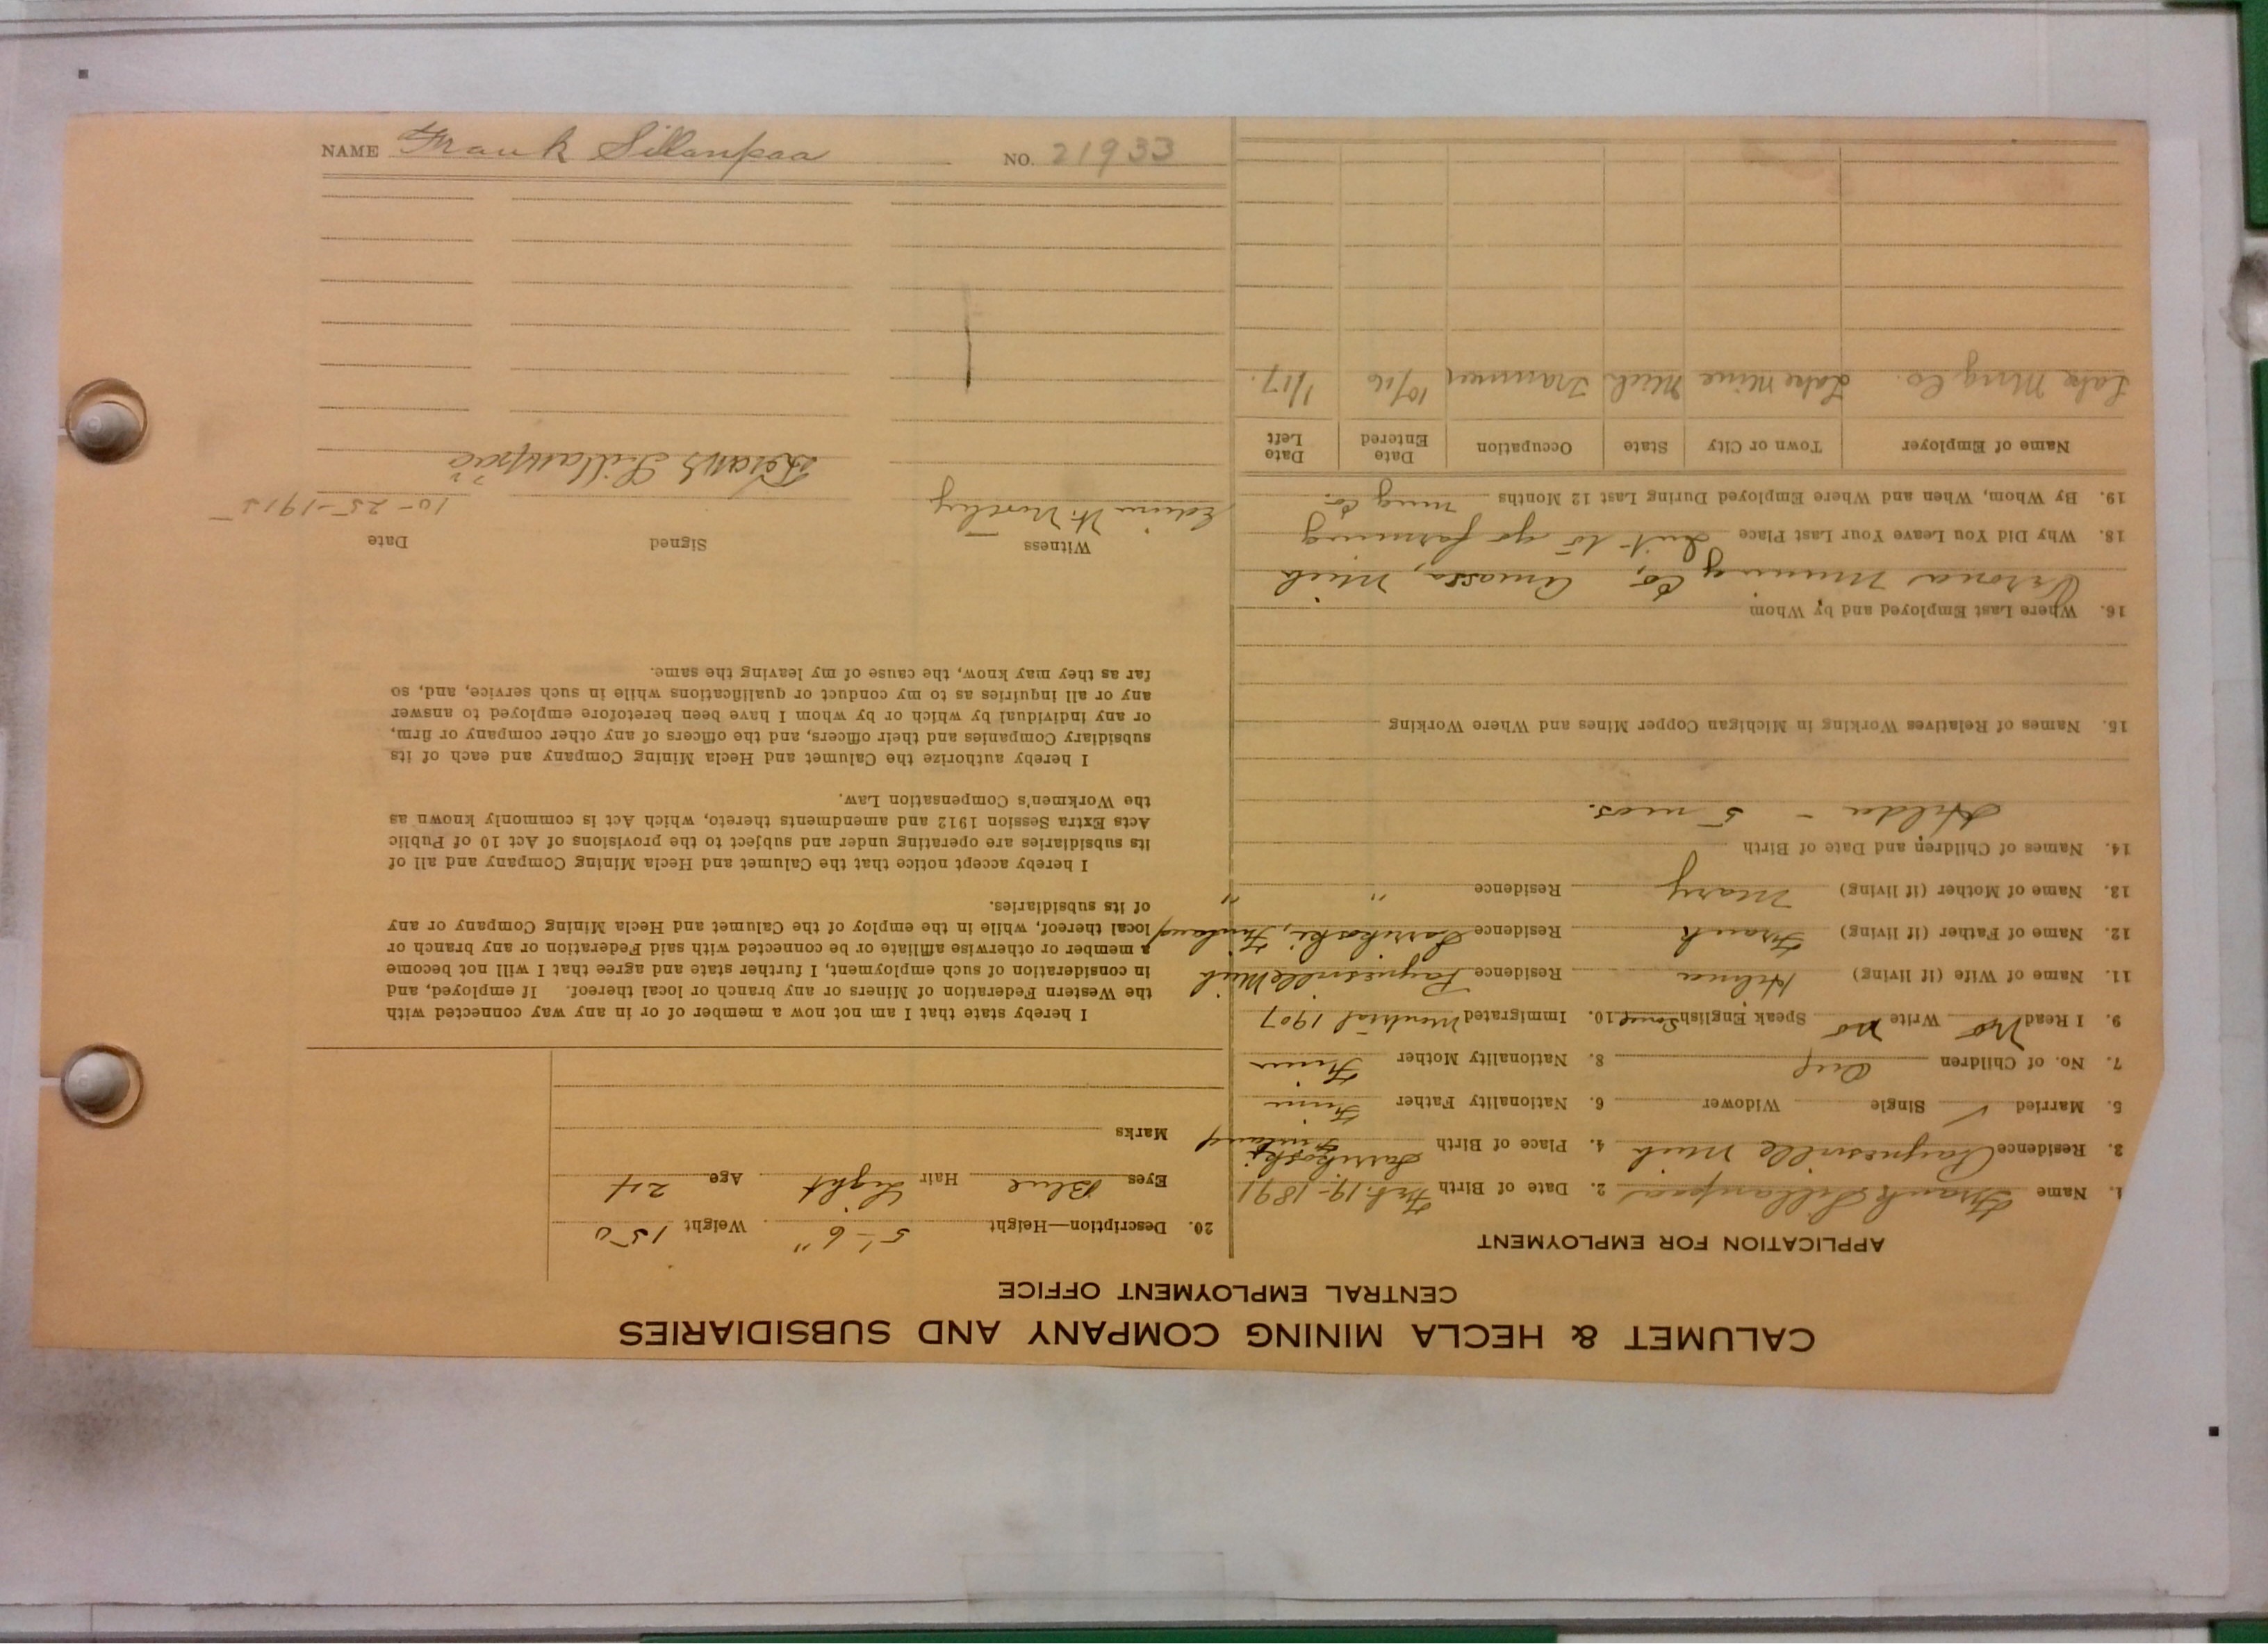 CALUMET & HECLA MINING COMPANY AND SUBSIDIARIES
CENTRAL EMPLOYMENT OFFICE
APPLICATION FOR EMPLOYMENT
1. Name Frank Sillanpaa 2. Date of Birth Feb. 19 - 1891
3. Residence Paynesville Mich 4. Place of Birth Finland
5. Married ✓ Single Widower 6. Nationality Father Finn
7. No. of Children One 8. Nationality Mother Finn
9. I Read No Write No Speak English Some 10. Immigrated Montreal 1907
11. Name of Wife (if living) Hilma Residence Paynesville Mich
12. Name of Father (if living) Frank Residence Finland
13. Name of Mother (if living) Mary Residence " "
14. Names of Children and Date of Birth
Hilda - 5 mos.
15. Names of Relatives Working in Michigan Copper Mines and Where Working
16. Where Last Employed and by Whom
Verona Mining Co, Amasa, Mich
18. Why Did You Leave Your Last Place Quit to go farming
19. By Whom, When and Where Employed During Last 12 Months Ming Co.
Name of Employer Town or City State Occupation Date Entered Date Left
Lake Mng Co. Lake Mine Mich Trammer 10/16 1/17.
20. Description—Height 5'-6" Weight 150
Eyes Blue Hair Light Age 24
Marks
I hereby state that I am not now a member of or in any way connected with
the Western Federation of Miners or any branch or local thereof. If employed, and
in consideration of such employment, I further state and agree that I will not become
a member or otherwise affiliate or be connected with said Federation or any branch or
local thereof, while in the employ of the Calumet and Hecla Mining Company or any
of its subsidiaries.
I hereby accept notice that the Calumet and Hecla Mining Company and all of
its subsidiaries are operating under and subject to the provisions of Act 10 of Public
Acts Extra Session 1912 and amendments thereto, which Act is commonly known as
the Workmen's Compensation Law.
I hereby authorize the Calumet and Hecla Mining Company and each of its
subsidiary Companies and their officers, and the officers of any other company or firm,
or any individual by which or by whom I have been heretofore employed to answer
any or all inquiries as to my conduct or qualifications while in such service, and, so
far as they may know, the cause of my leaving the same.
Witness Signed Date
Edwin W. Frank Sillanpää 10-25-1915
NAME Frank Sillanpaa NO. 21933